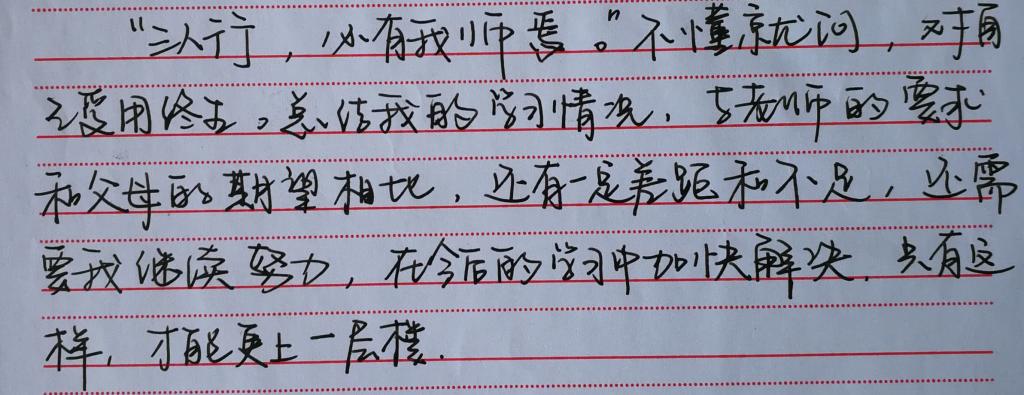 “三人行，必有我师焉。”不懂就问，对于自
己受用终生。总结我的学习情况，与老师的要求
和父母的期望相比，还有一定差距和不足，还需
要我继续努力，在今后的学习中加快解决．只有这
样，才能更上一层楼．